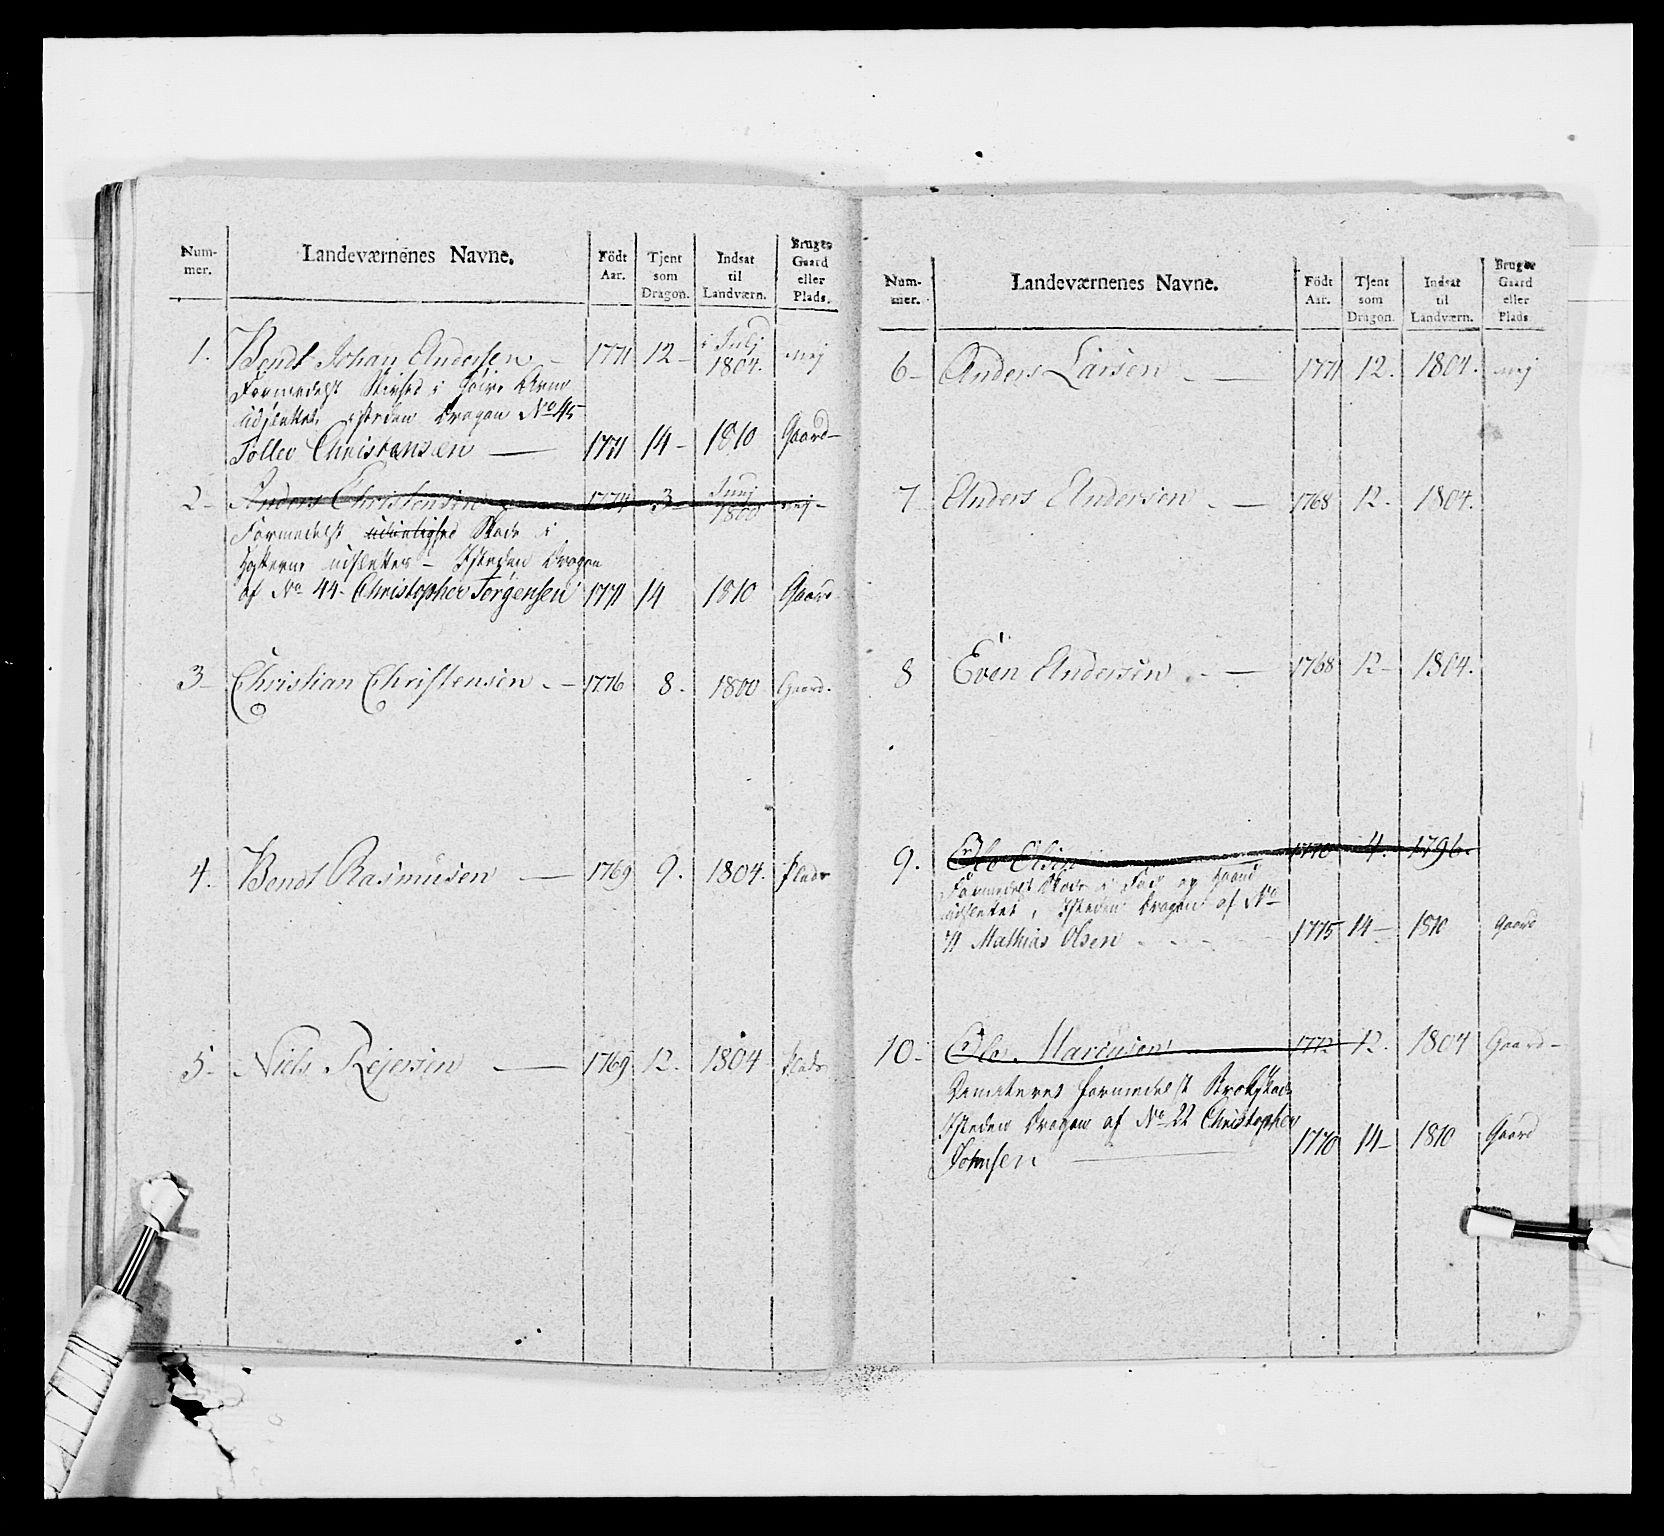 Num-mer. Landeværnenes Navne. Födt Aar. Tjent som Dragon. Indsat til Landværn. Bruger Gaard eller Plads.
1. Bendt Johan Andersen 1771 12 i Julj 1804. nej
Formedelst Stivhed i høire Arm
udslettet, isteden Dragon No 45
Tollev Christensen 1771 14 1810 Gaard
2 Anders Christensen 1774 3 Junj 1800 nej
Formedelst Skade i
Hofterne udslettes Isteden Dragon
af No 44 Christopher Jørgensen 1771 14 1810 Gaard
3 Christian Christensen 1776 8. 1800 Gaard.
4. Bendt Rasmusen 1769 9. 1804. Plads
5 Niels Rejersen 1769 12. 1804 Plads
Num-mer. Landeværnenes Navne. Födt Aar. Tjent som Dragon. Indsat til Landværn. Bruger Gaard eller Plads.
6 Anders Larsen 1771 12. 1804. nej
7 Anders Andersen 1768 12. 1804.
8 Even Andersen 1768 12 1804.
9. Ole Olsen 1770 4. 1796.
Formedelst Skade i Fod og Haand
udslettet, Isteden Dragon af No
71 Mathias Olsen 1775 14 1810 Gaard
10 Ole Marcusen 1772 12. 1804 Gaard
formedelst Brokskade
Isteden Dragon af No 22 Christopher
Johnsen 1770 14 1810 Gaard